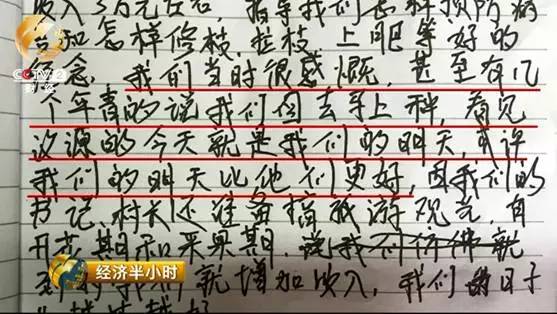 收入3万元左右，指导我们预防病
和怎样修枝，拉枝，上肥等好的
念，我们当时很感慨，甚至有几
个年青的说我们回去马上种，看见
源的今天就是我们的明天，或许
我们的明天比他们更好，因我们的
书记、村长还准备搞旅游观光，自
开花期和采果期，
就增加收入，我们的日子
越过越好
CCTV2
财经
经济半小时